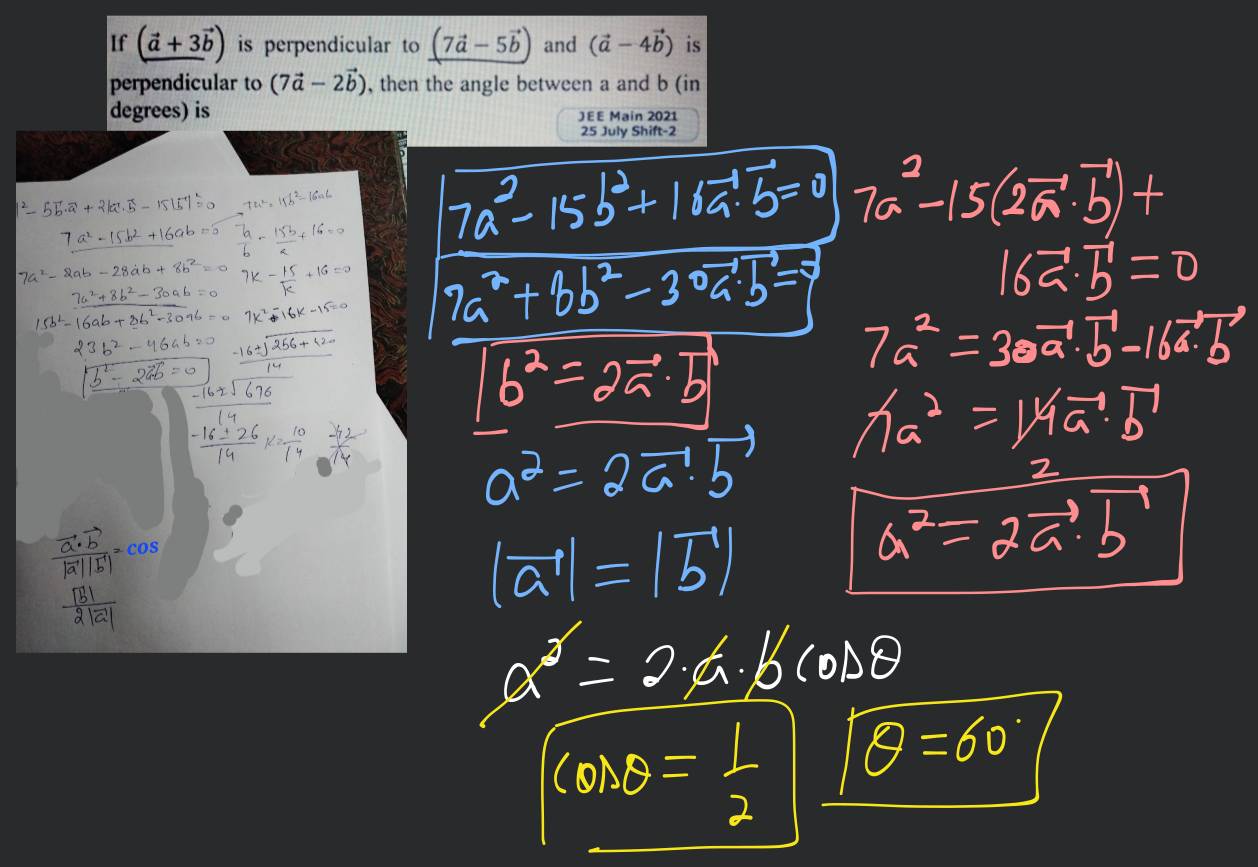 If (a⃗ + 3b⃗) is perpendicular to (7a⃗ − 5b⃗) and (a⃗ − 4b⃗) is
perpendicular to (7a⃗ − 2b⃗), then the angle between a and b (in
degrees) is
JEE Main 2021
25 July Shift-2
7a² - 15b² + 16ab = 0
7a/b - 15b/a + 16 = 0
7a² - 2ab - 28ab + 8b² = 0
7K - 15/K + 16 = 0
7a² + 8b² - 30ab = 0
15b² - 16ab + 8b² - 30ab = 0
7K² + 16K - 15 = 0
23b² - 46ab = 0
-16 ± √256 + 420
14
b² - 2a⃗b⃗ = 0
-16 ± √676
14
-16 ± 26
14
K = 10/14
a⃗·b⃗/|a⃗||b⃗| = cos
|b⃗|/2|a⃗|
7a² - 15b² + 16a⃗·b⃗ = 0
7a² + 8b² - 30a⃗·b⃗ = 0
b² = 2a⃗·b⃗
a² = 2a⃗·b⃗
|a⃗| = |b⃗|
7a² - 15(2a⃗·b⃗) +
16a⃗·b⃗ = 0
7a² = 30a⃗·b⃗ - 16a⃗·b⃗
7a² = 14a⃗·b⃗
2
a² = 2a⃗·b⃗
a² = 2·a·b cosθ
cosθ = 1/2
θ = 60°